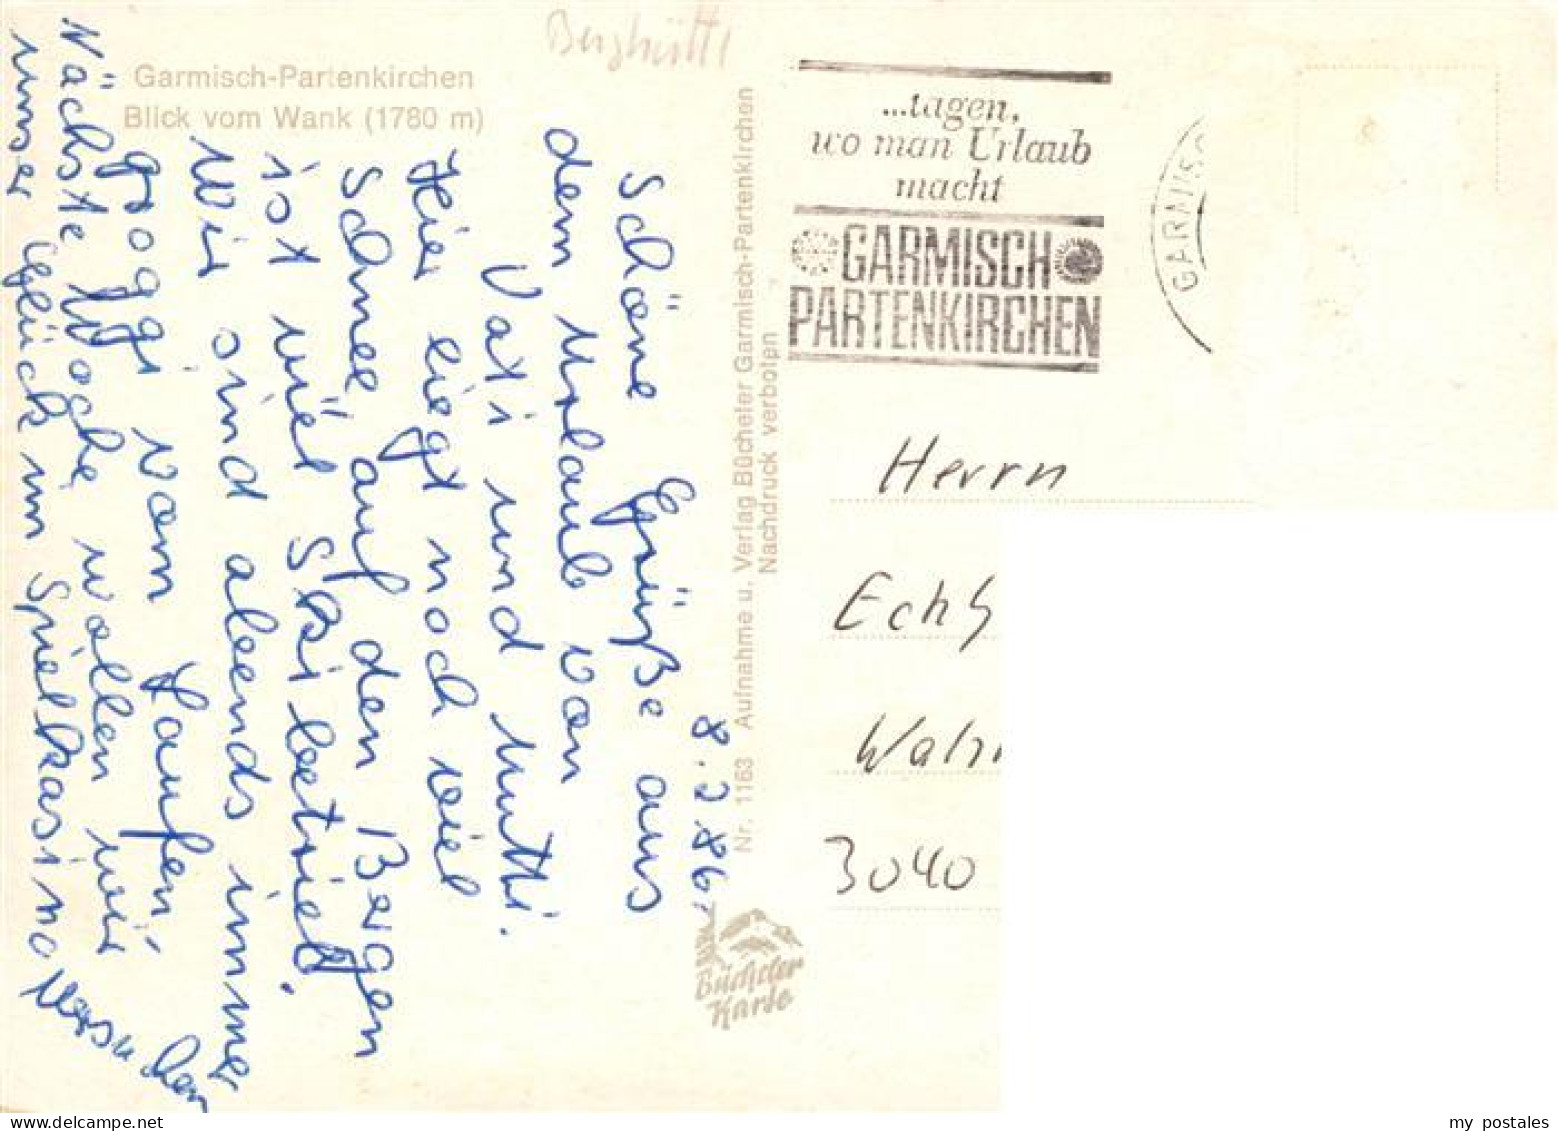 Garmisch-Partenkirchen
Blick vom Wank (1780 m)
Berghüttl
8.2.86
Schöne Grüße aus
dem Urlaub von
Vati und Mutti.
Hier liegt noch viel
Schnee auf den Bergen
ist viel Skibetrieb.
Wir sind abends immer
groggi vom Laufen
Nächste Woche wollen wir
unser Glück im Spielkasino versuchen
Nr. 1163 Aufnahme u. Verlag Bücheler Garmisch-Partenkirchen
Nachdruck verboten
Bücheler
Karte
...tagen,
wo man Urlaub
macht
GARMISCH
PARTENKIRCHEN
GARMISC
Herrn
3040
my postales